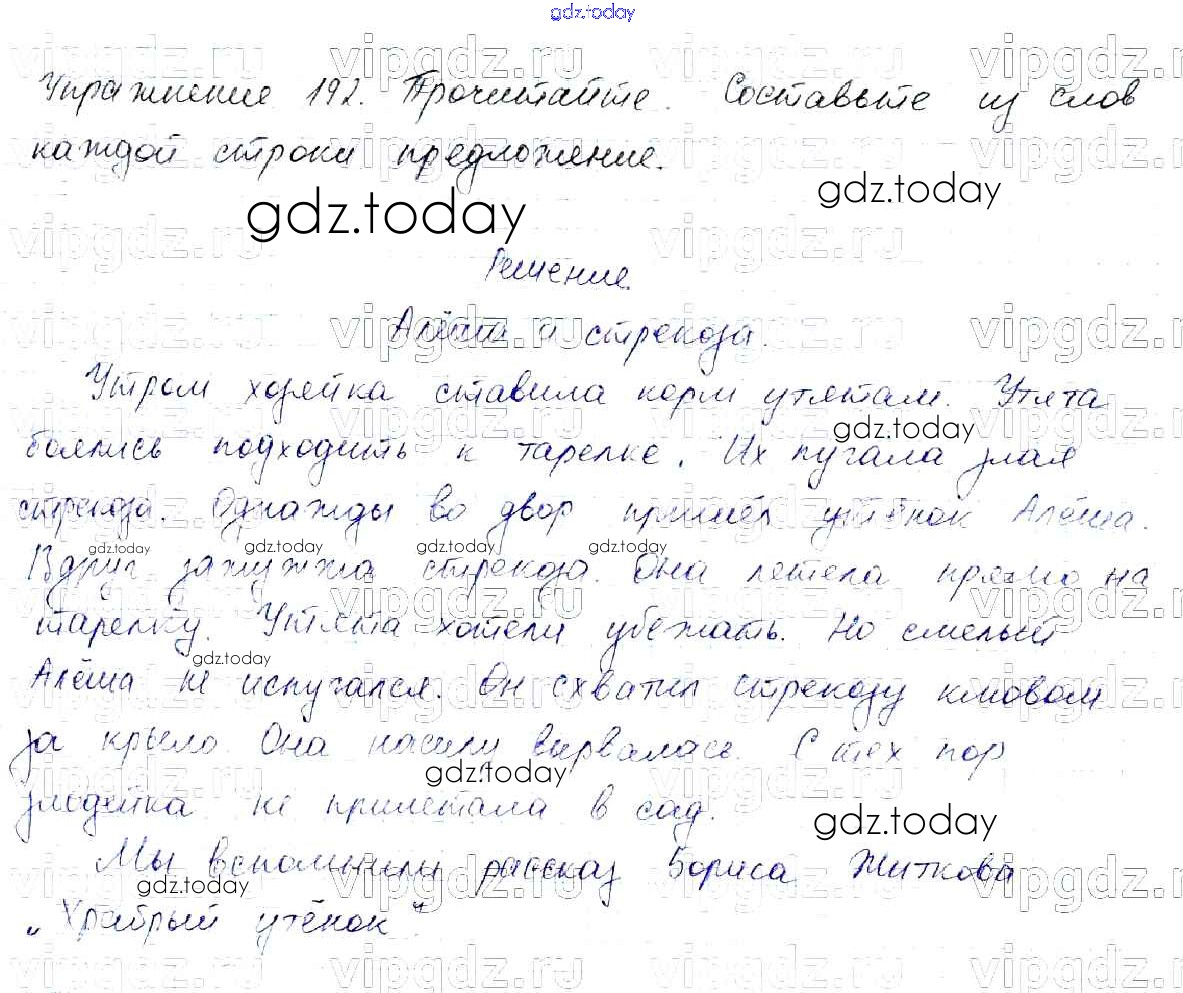 gdz.today
Упражнение 192. Прочитайте. Составьте из слов
каждой строки предложение.
gdz.today
gdz.today
Решение.
Алёша и стрекоза.
Утром хозяйка ставила корм утятам. Утята
gdz.today
боялись подходить к тарелке. Их пугала злая
стрекоза. Однажды во двор пришёл утёнок Алёша.
gdz.today gdz.today gdz.today gdz.today
Вдруг зажужжа стрекоза. Она летела прямо на
тарелку. Утята хотели убежать. Но смелый
gdz.today
Алёша не испугался. Он схватил стрекозу клювом
за крыло. Она насилу вырвалась. С тех пор
gdz.today
злодейка не прилетала в сад.
gdz.today
Мы вспомнили рассказ Бориса Житкова
gdz.today
„Храбрый утёнок“.
vipgdz.ru